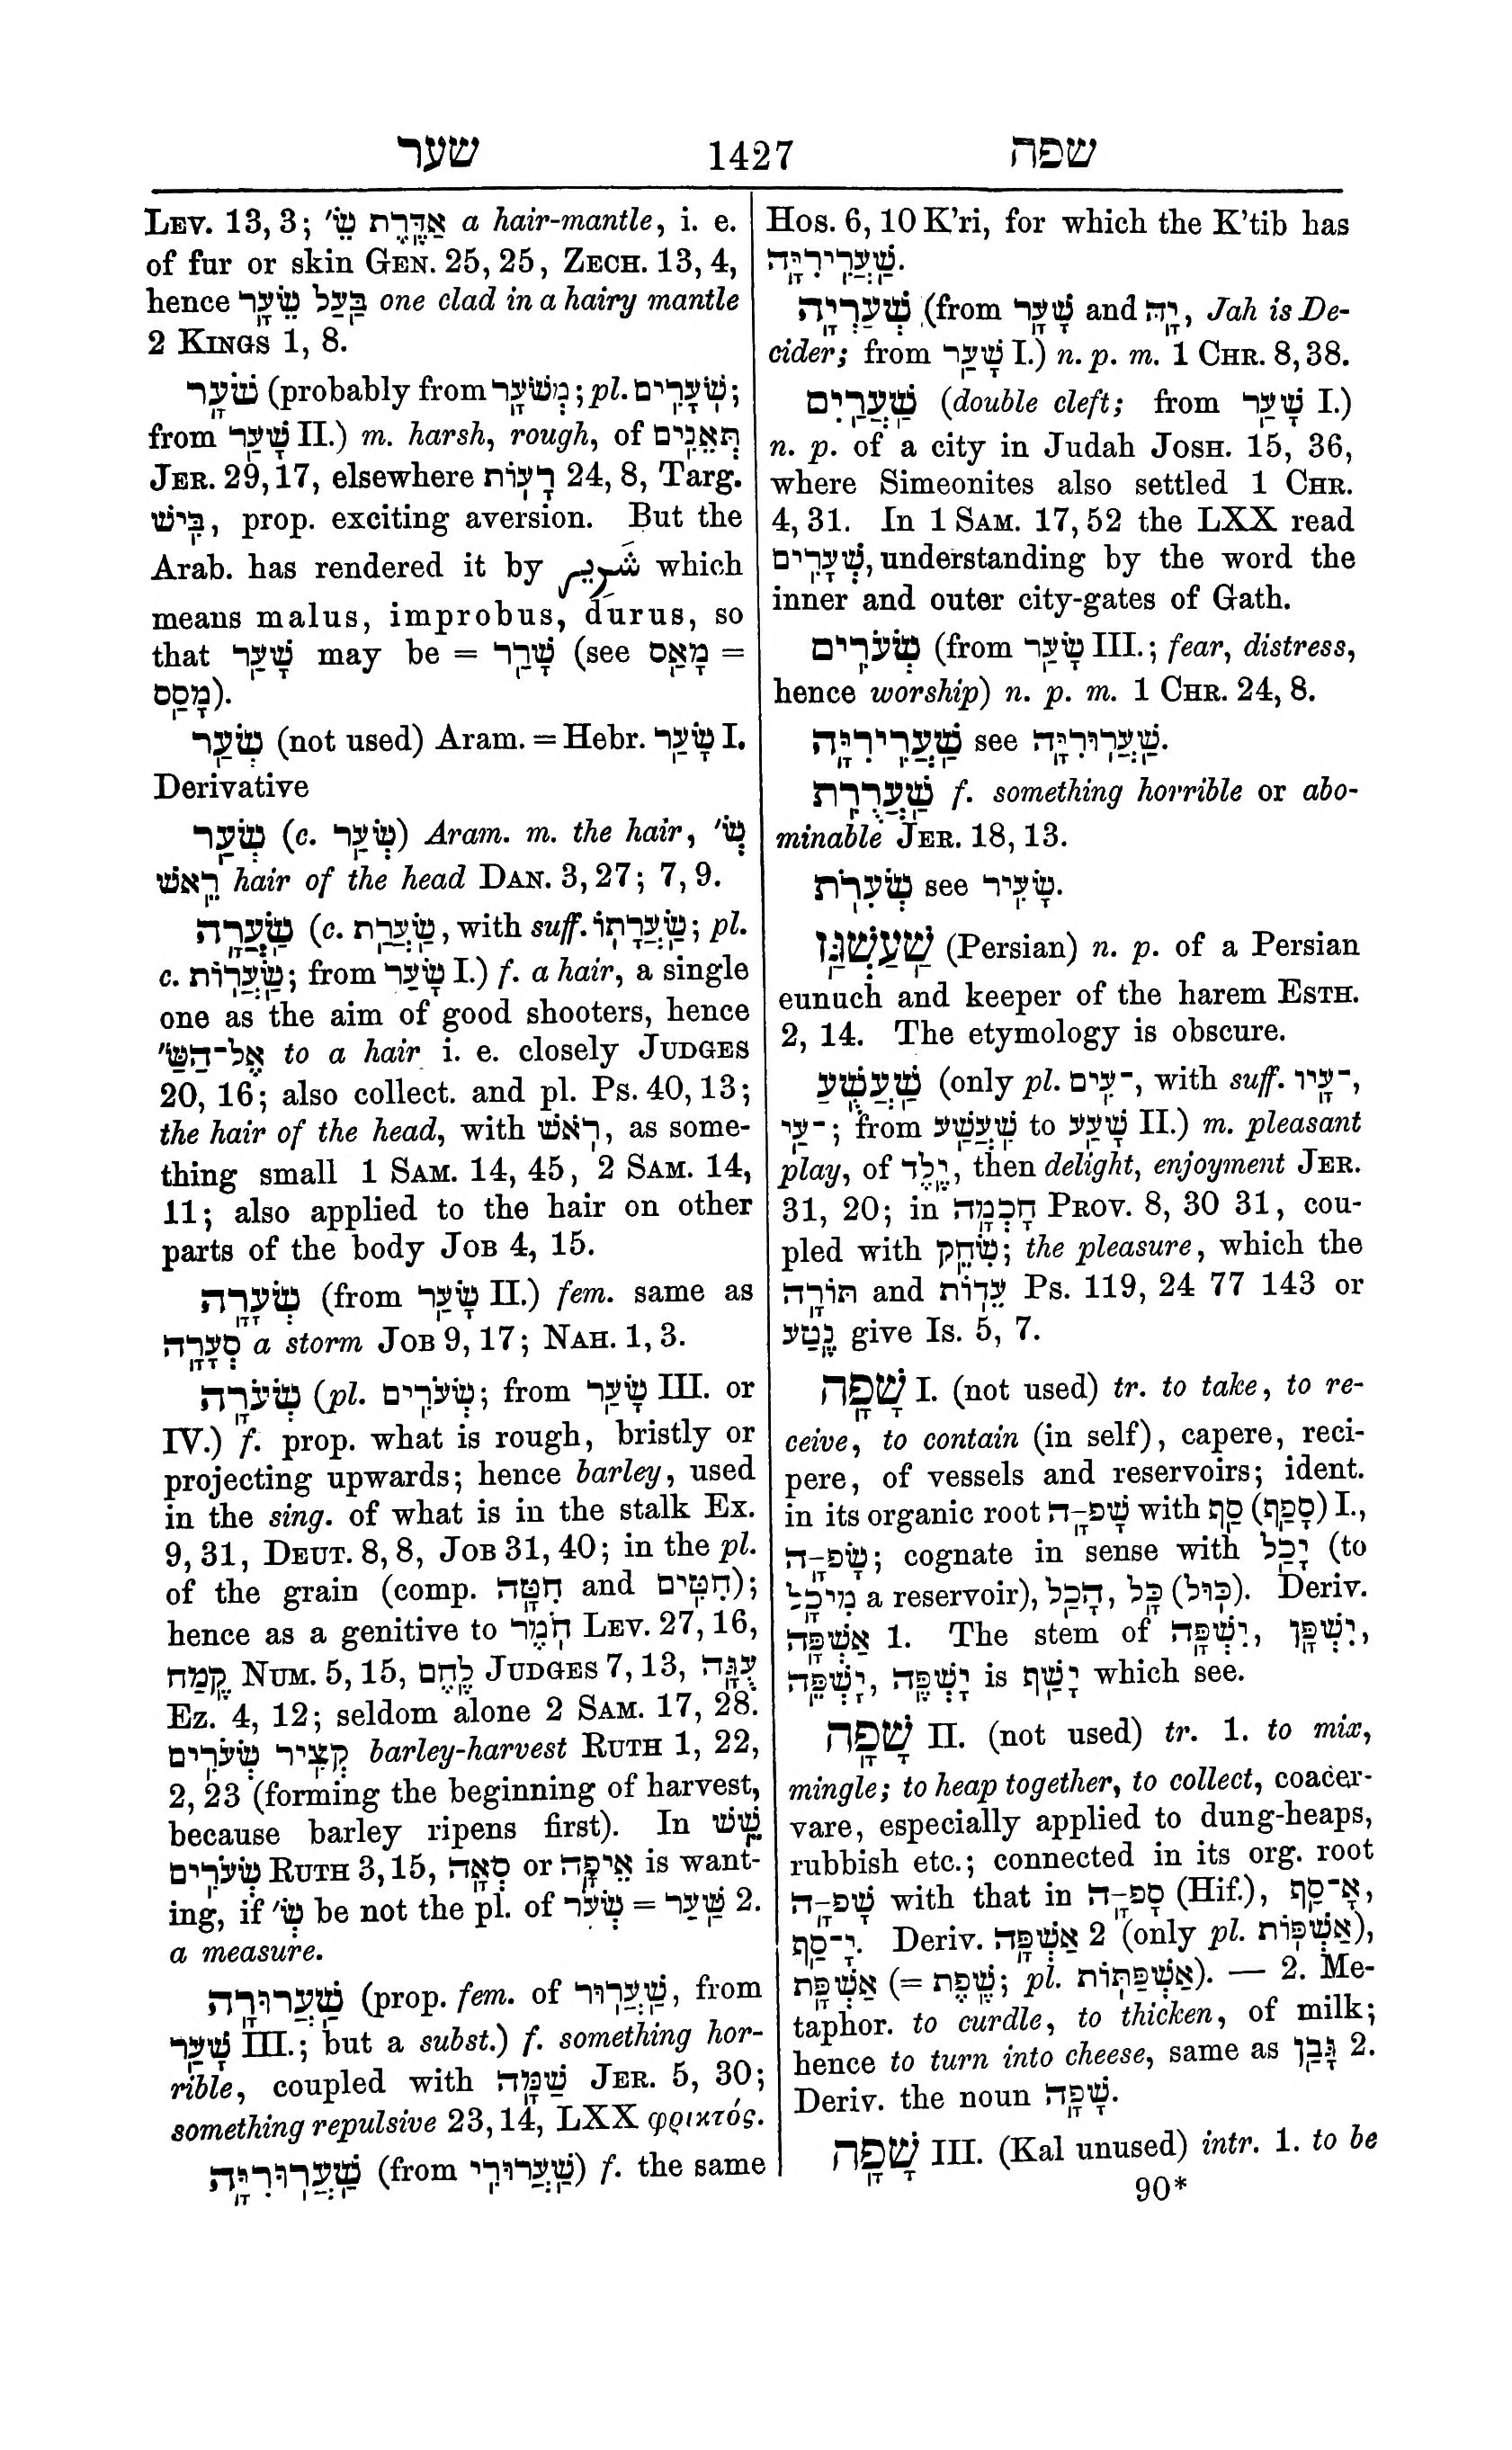 שער 1427 שפה
LEV. 13, 3; אַדֶּרֶת שֵׂ' a hair-mantle, i. e.
of fur or skin GEN. 25, 25, ZECH. 13, 4,
hence בַּעַל שֵׂעָר one clad in a hairy mantle
2 KINGS 1, 8.
שֹׁעָר (probably from מְשֹׁעָר; pl. שֹׁעָרִים;
from שָׁעַר II.) m. harsh, rough, of תְּאֵנִים
JER. 29, 17, elsewhere רָעוֹת 24, 8, Targ.
בִּישׁ, prop. exciting aversion. But the
Arab. has rendered it by which
means malus, improbus, durus, so
that שָׁעַר may be = שָׁרַר (see מָאַס =
מָסַס).
שְׂעַר (not used) Aram. = Hebr. שָׂעַר I.
Derivative
שְׂעַר (c. שְׂעַר) Aram. m. the hair, שְׂ'
רֵאשׁ hair of the head DAN. 3, 27; 7, 9.
שַׂעֲרָה (c. שַׂעֲרַת, with suff. שַׂעֲרָתוֹ; pl.
c. שַׂעֲרוֹת; from שָׂעַר I.) f. a hair, a single
one as the aim of good shooters, hence
אֶל־הַשַּׂ' to a hair i. e. closely JUDGES
20, 16; also collect. and pl. Ps. 40, 13;
the hair of the head, with רֹאשׁ, as some-
thing small 1 SAM. 14, 45, 2 SAM. 14,
11; also applied to the hair on other
parts of the body JOB 4, 15.
שְׂעָרָה (from שָׂעַר II.) fem. same as
סְעָרָה a storm JOB 9, 17; NAH. 1, 3.
שְׂעֹרָה (pl. שְׂעֹרִים; from שָׂעַר III. or
IV.) f. prop. what is rough, bristly or
projecting upwards; hence barley, used
in the sing. of what is in the stalk Ex.
9, 31, DEUT. 8, 8, JOB 31, 40; in the pl.
of the grain (comp. חִטָּה and חִטִּים);
hence as a genitive to חֹמֶר LEV. 27, 16,
קֶמַח NUM. 5, 15, לֶחֶם JUDGES 7, 13, עֻגָה
Ez. 4, 12; seldom alone 2 SAM. 17, 28.
קְצִיר שְׂעֹרִים barley-harvest RUTH 1, 22,
2, 23 (forming the beginning of harvest,
because barley ripens first). In שֵׁשׁ
שְׂעֹרִים RUTH 3, 15, סְאָה or אֵיפָה is want-
ing, if שְׂ' be not the pl. of שְׂעֹר = שַׁעַר 2.
a measure.
שַׁעֲרוּרָה (prop. fem. of שַׁעֲרוּר, from
שָׁעַר III.; but a subst.) f. something hor-
rible, coupled with שַׁמָּה JER. 5, 30;
something repulsive 23, 14, LXX φρικτός.
שַׁעֲרוּרִיָּה (from שַׁעֲרוּרִי) f. the same
Hos. 6, 10 K'ri, for which the K'tib has
שַׁעֲרִירִיָּה.
שְׁעַרְיָה (from שָׁעָר and יָהּ, Jah is De-
cider; from שָׁעַר I.) n. p. m. 1 CHR. 8, 38.
שַׁעֲרַיִם (double cleft; from שָׁעַר I.)
n. p. of a city in Judah JOSH. 15, 36,
where Simeonites also settled 1 CHR.
4, 31. In 1 SAM. 17, 52 the LXX read
שְׁעָרִים, understanding by the word the
inner and outer city-gates of Gath.
שְׂעֹרִים (from שָׂעַר III.; fear, distress,
hence worship) n. p. m. 1 CHR. 24, 8.
שַׁעֲרִירִיָּה see שַׁעֲרוּרִיָּה.
שַׁעֲרֻרִת f. something horrible or abo-
minable JER. 18, 13.
שְׂעִרֹת see שָׂעִיר.
שַׁעַשְׁגַּז (Persian) n. p. of a Persian
eunuch and keeper of the harem ESTH.
2, 14. The etymology is obscure.
שַׁעֲשֻׁעַ (only pl. ־עִים, with suff. ־עָיו,
־עַי; from שִׁעֲשַׁע to שָׁעַע II.) m. pleasant
play, of יֶלֶד, then delight, enjoyment JER.
31, 20; in חָכְמָה PROV. 8, 30 31, cou-
pled with שִׂחֵק; the pleasure, which the
תּוֹרָה and עֵדוֹת Ps. 119, 24 77 143 or
נֶטַע give Is. 5, 7.
שָׁפָה I. (not used) tr. to take, to re-
ceive, to contain (in self), capere, reci-
pere, of vessels and reservoirs; ident.
in its organic root שָׁפ־ָה with סַף (סָפַף) I.,
שָׂפ־ָה; cognate in sense with יָכַל (to
מִיכָל a reservoir), הָכַל, כָּל (כּוּל). Deriv.
אַשְׁפָּה 1. The stem of יִשְׁפָּה, יִשְׁפָּן,
יָשְׁפֶה, יָשְׁפֵה is יָשַׁף which see.
שָׁפָה II. (not used) tr. 1. to mix,
mingle; to heap together, to collect, coacer-
vare, especially applied to dung-heaps,
rubbish etc.; connected in its org. root
שָׁפ־ָה with that in סָפ־ָה (Hif.), אָ־סַף,
יָ־סַף. Deriv. אַשְׁפָּה 2 (only pl. אַשְׁפּוֹת),
אַשְׁפָּת (= שֶׁפֶת; pl. אַשְׁפַּתּוֹת). — 2. Me-
taphor. to curdle, to thicken, of milk;
hence to turn into cheese, same as גָּבַן 2.
Deriv. the noun שָׁפָה.
שָׁפָה III. (Kal unused) intr. 1. to be
90*